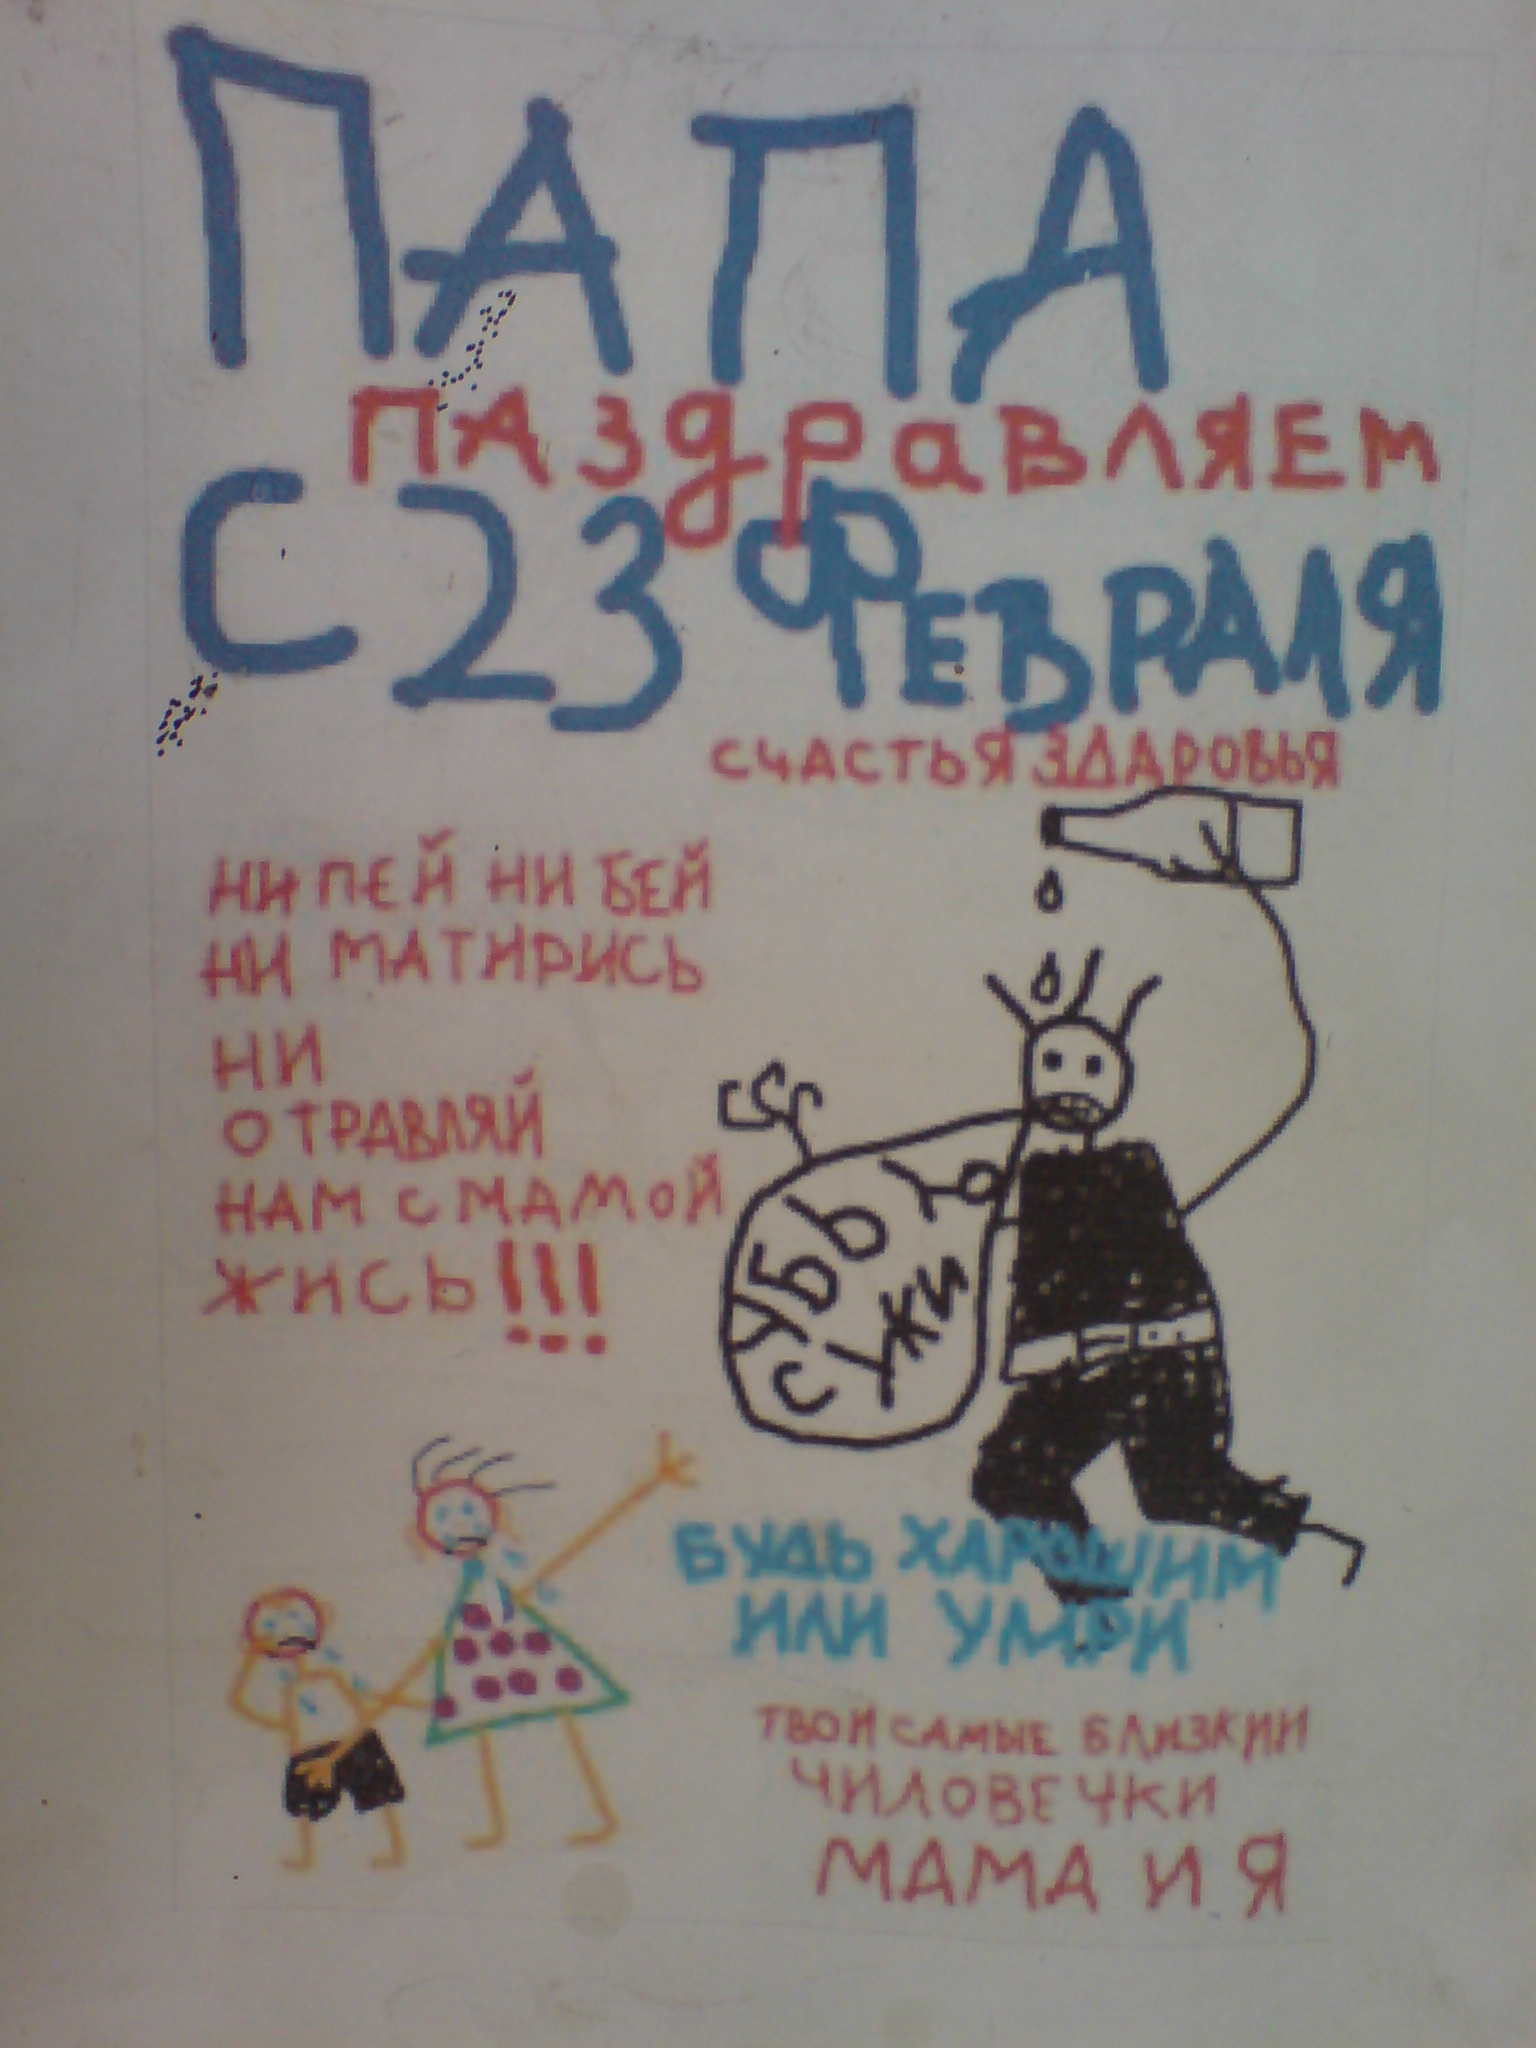 ПАПА
ПАздравляем
С 23 ФЕВРАЛЯ
СЧАСТЬЯ ЗДАРОВЬЯ
НИ ПЕЙ НИ БЕЙ
НИ МАТИРИСЬ
НИ
ОТРАВЛЯЙ
НАМ С МАМОЙ
ЖИСЬ!!!
УБЬЮ
СУЖИ
БУДЬ ХАРОШИМ
ИЛИ УМРИ
ТВОИ САМЫЕ БЛИЗКИИ
ЧИЛОВЕЧКИ
МАМА И Я